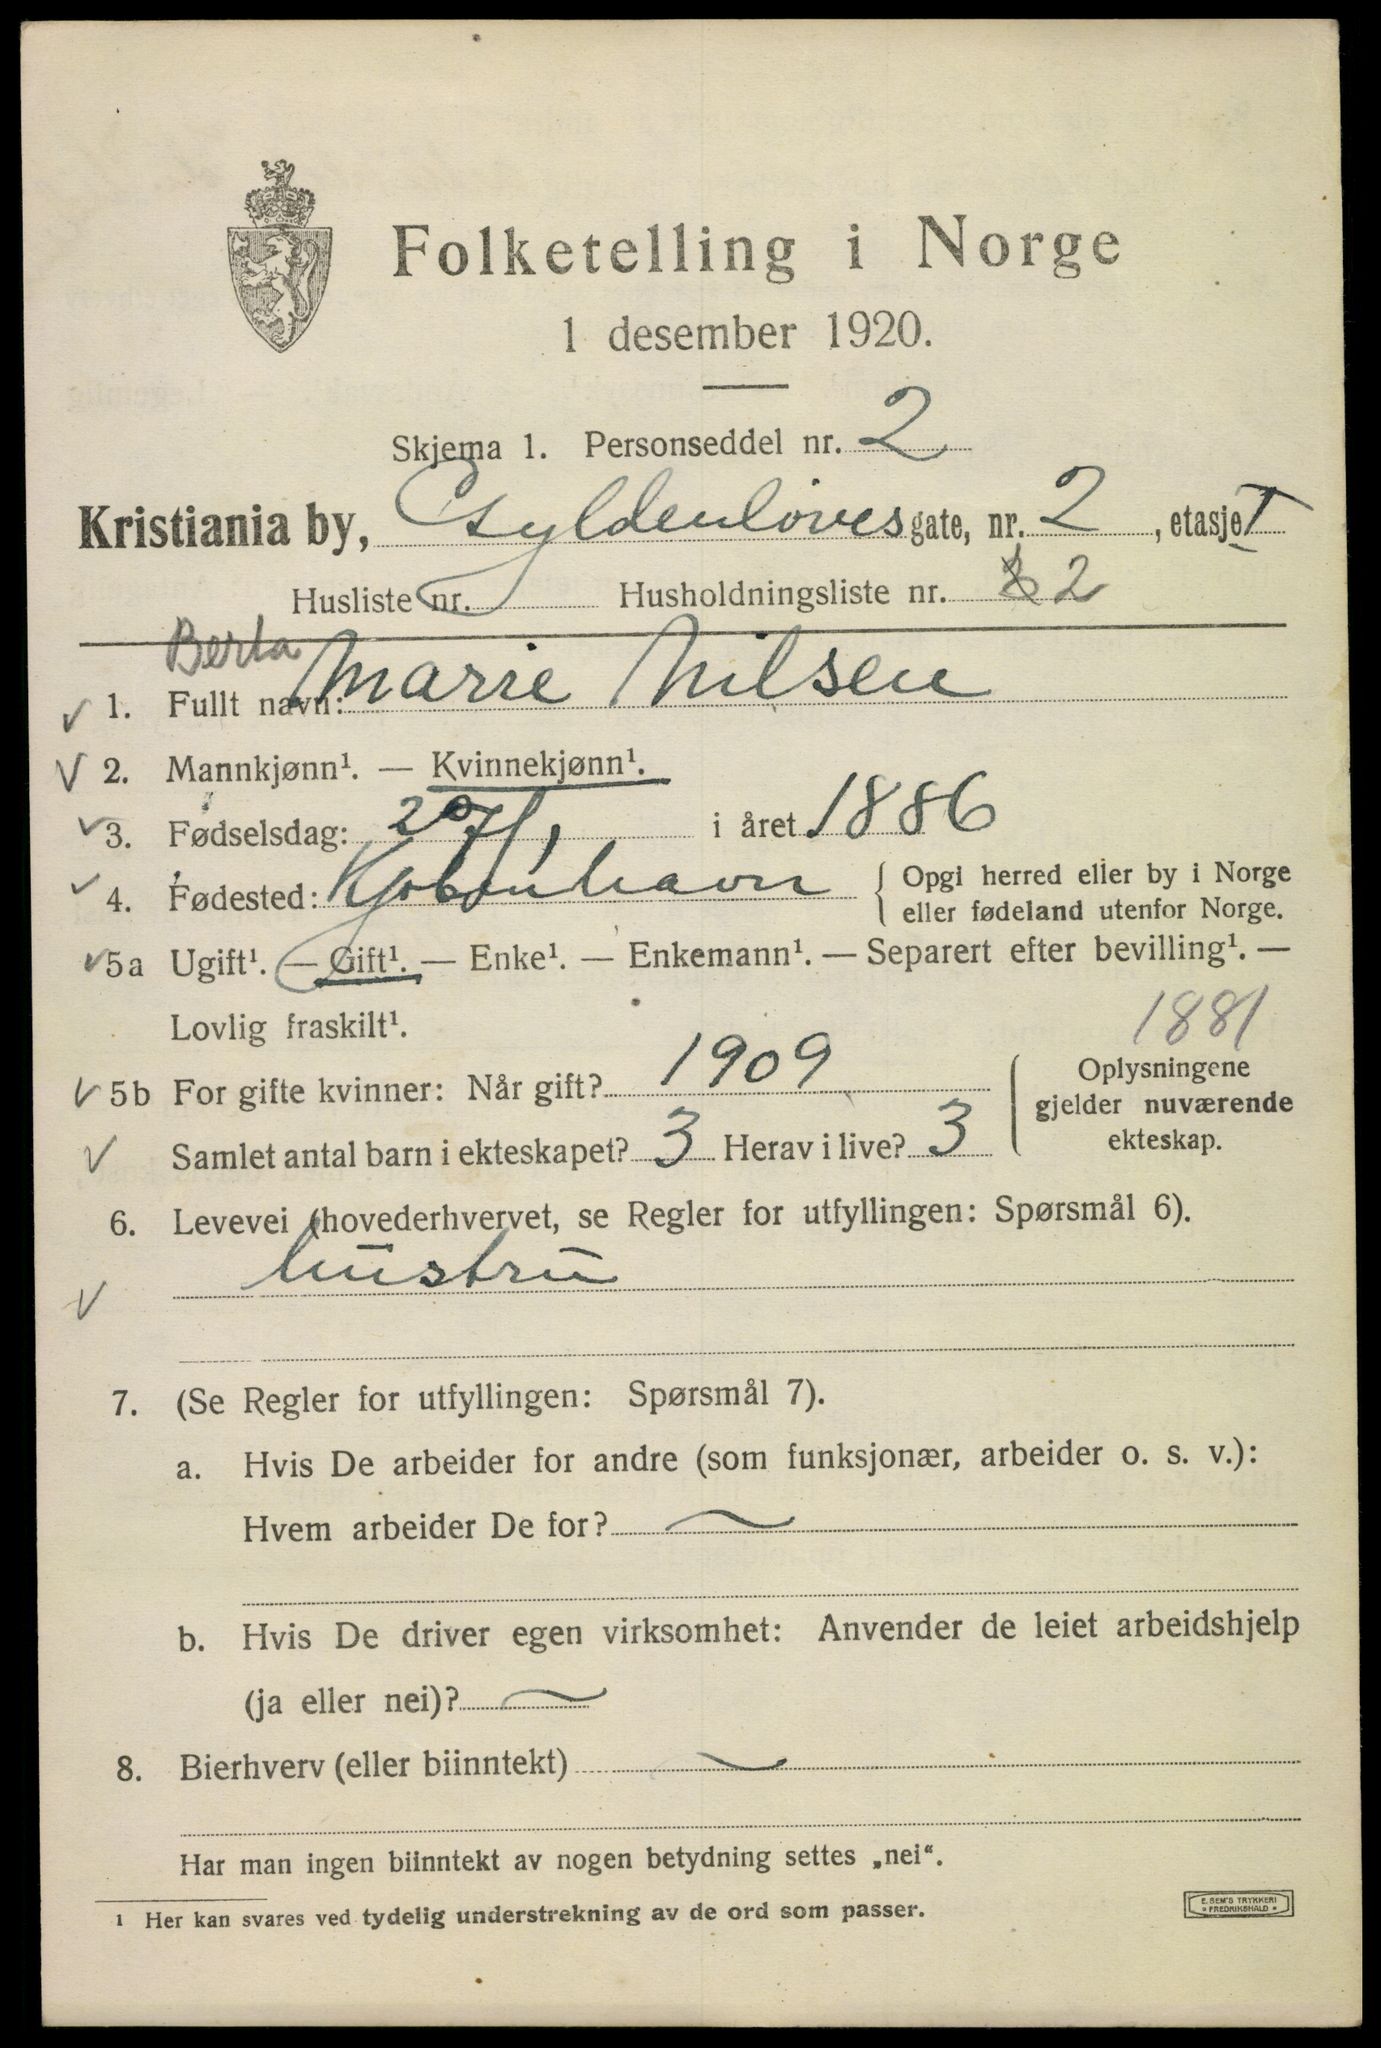 Folketelling i Norge
1 desember 1920.
Skjema 1. Personseddel nr. 2
Kristiania by, Gyldenløves gate, nr. 2, etasje I
Husliste nr. Husholdningsliste nr. 2
Berta
1. Fullt navn: Marie Nilsen
2. Mannkjønn¹. — Kvinnekjønn¹.
3. Fødselsdag: i året 1886
4. Fødested: Kjøbenhavn { Opgi herred eller by i Norge
eller fødeland utenfor Norge.
5a Ugift¹. — Gift¹. — Enke¹. — Enkemann¹. — Separert efter bevilling¹. —
Lovlig fraskilt¹.
1881
5b For gifte kvinner: Når gift? 1909
Samlet antal barn i ekteskapet? 3 Herav i live? 3
Oplysningene
gjelder nuværende
ekteskap.
6. Levevei (hovederhvervet, se Regler for utfyllingen: Spørsmål 6).
hustru
7. (Se Regler for utfyllingen: Spørsmål 7).
a. Hvis De arbeider for andre (som funksjonær, arbeider o. s. v.):
Hvem arbeider De for? ~
b. Hvis De driver egen virksomhet: Anvender de leiet arbeidshjelp
(ja eller nei)? ~
8. Bierhverv (eller biinntekt) ~
Har man ingen biinntekt av nogen betydning settes „nei“.
¹ Her kan svares ved tydelig understrekning av de ord som passer.
E. SEM'S TRYKKERI
FREDRIKSHALD